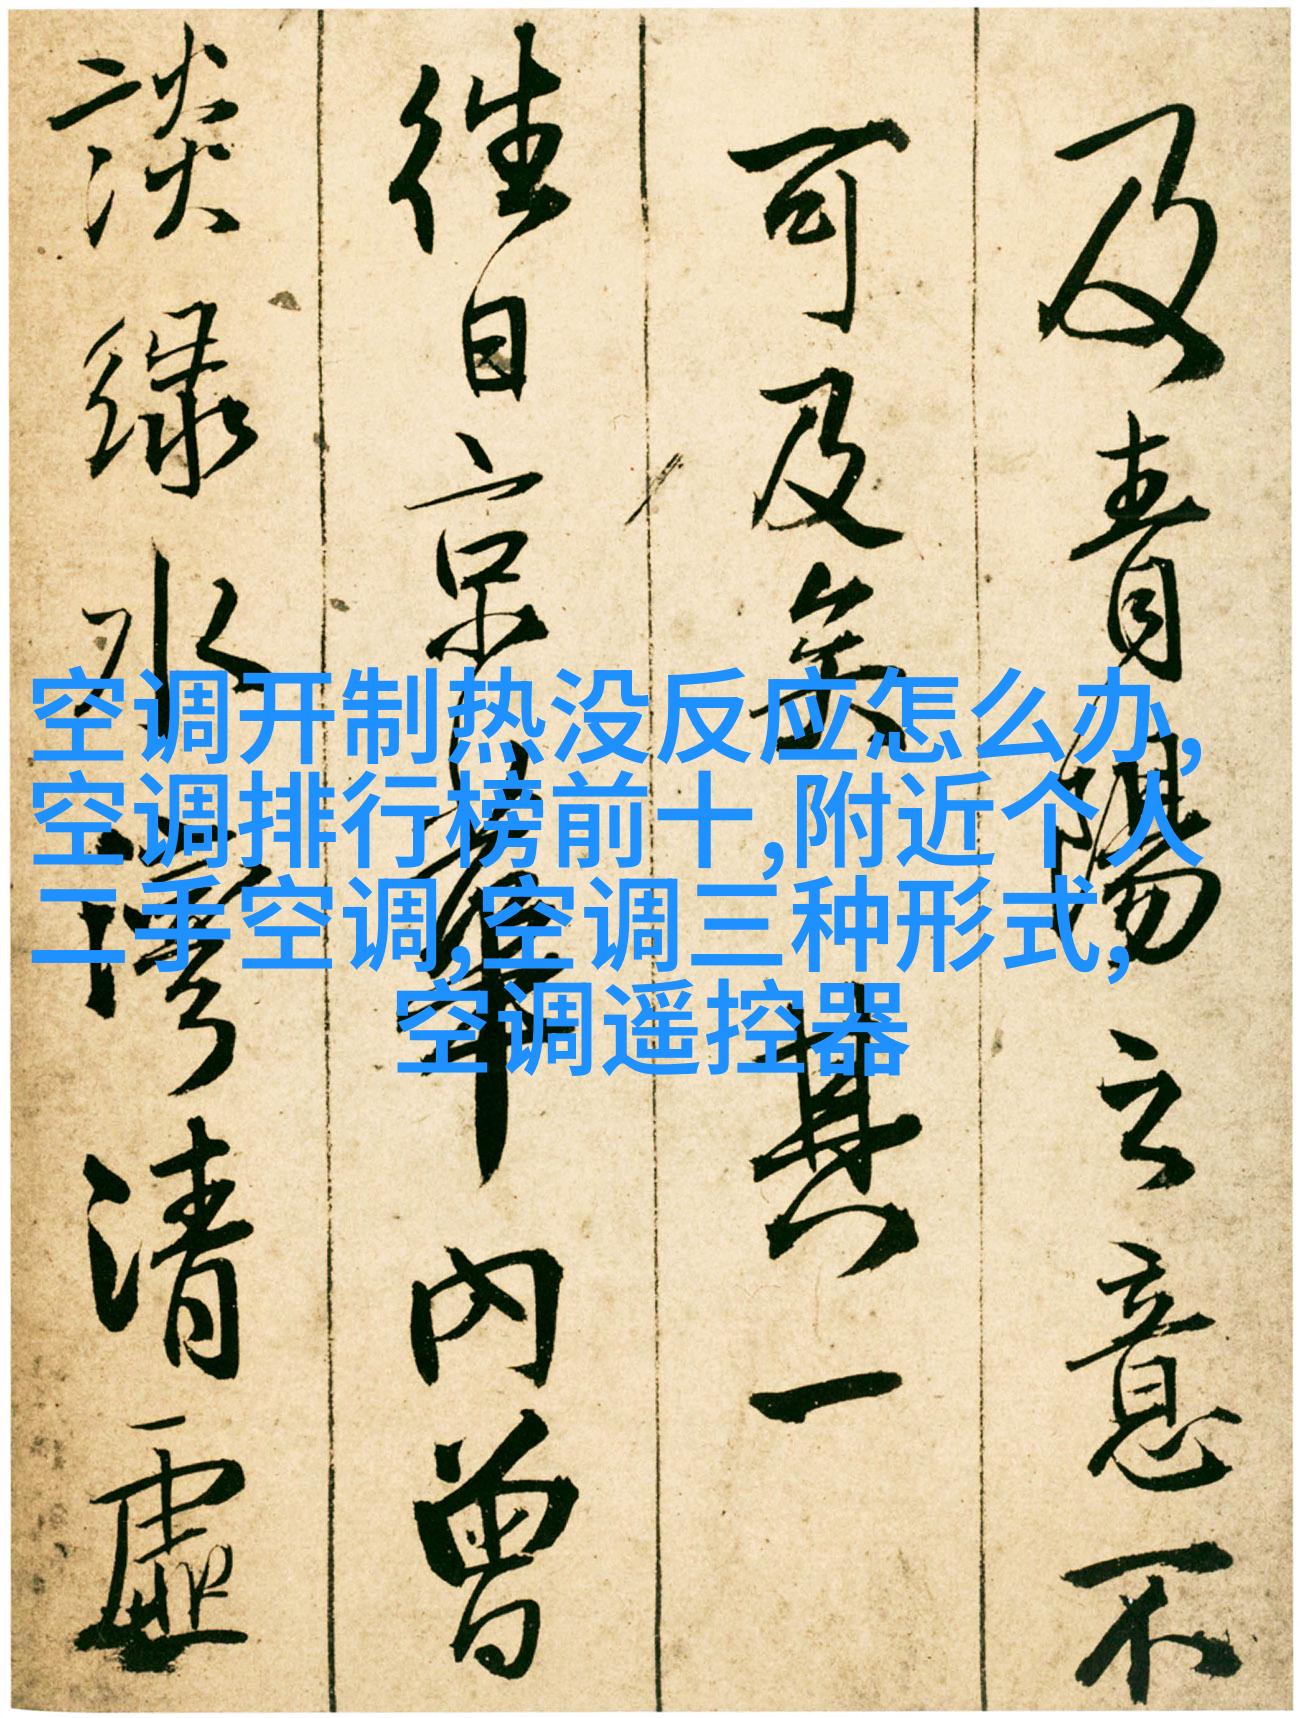 空调开制热没反应怎么办,
空调排行榜前十,附近个人
二手空调,空调三种形式,
空调遥控器
及青陽之意不
可及矣其一
往日京華內曾
談緑水灣清虛